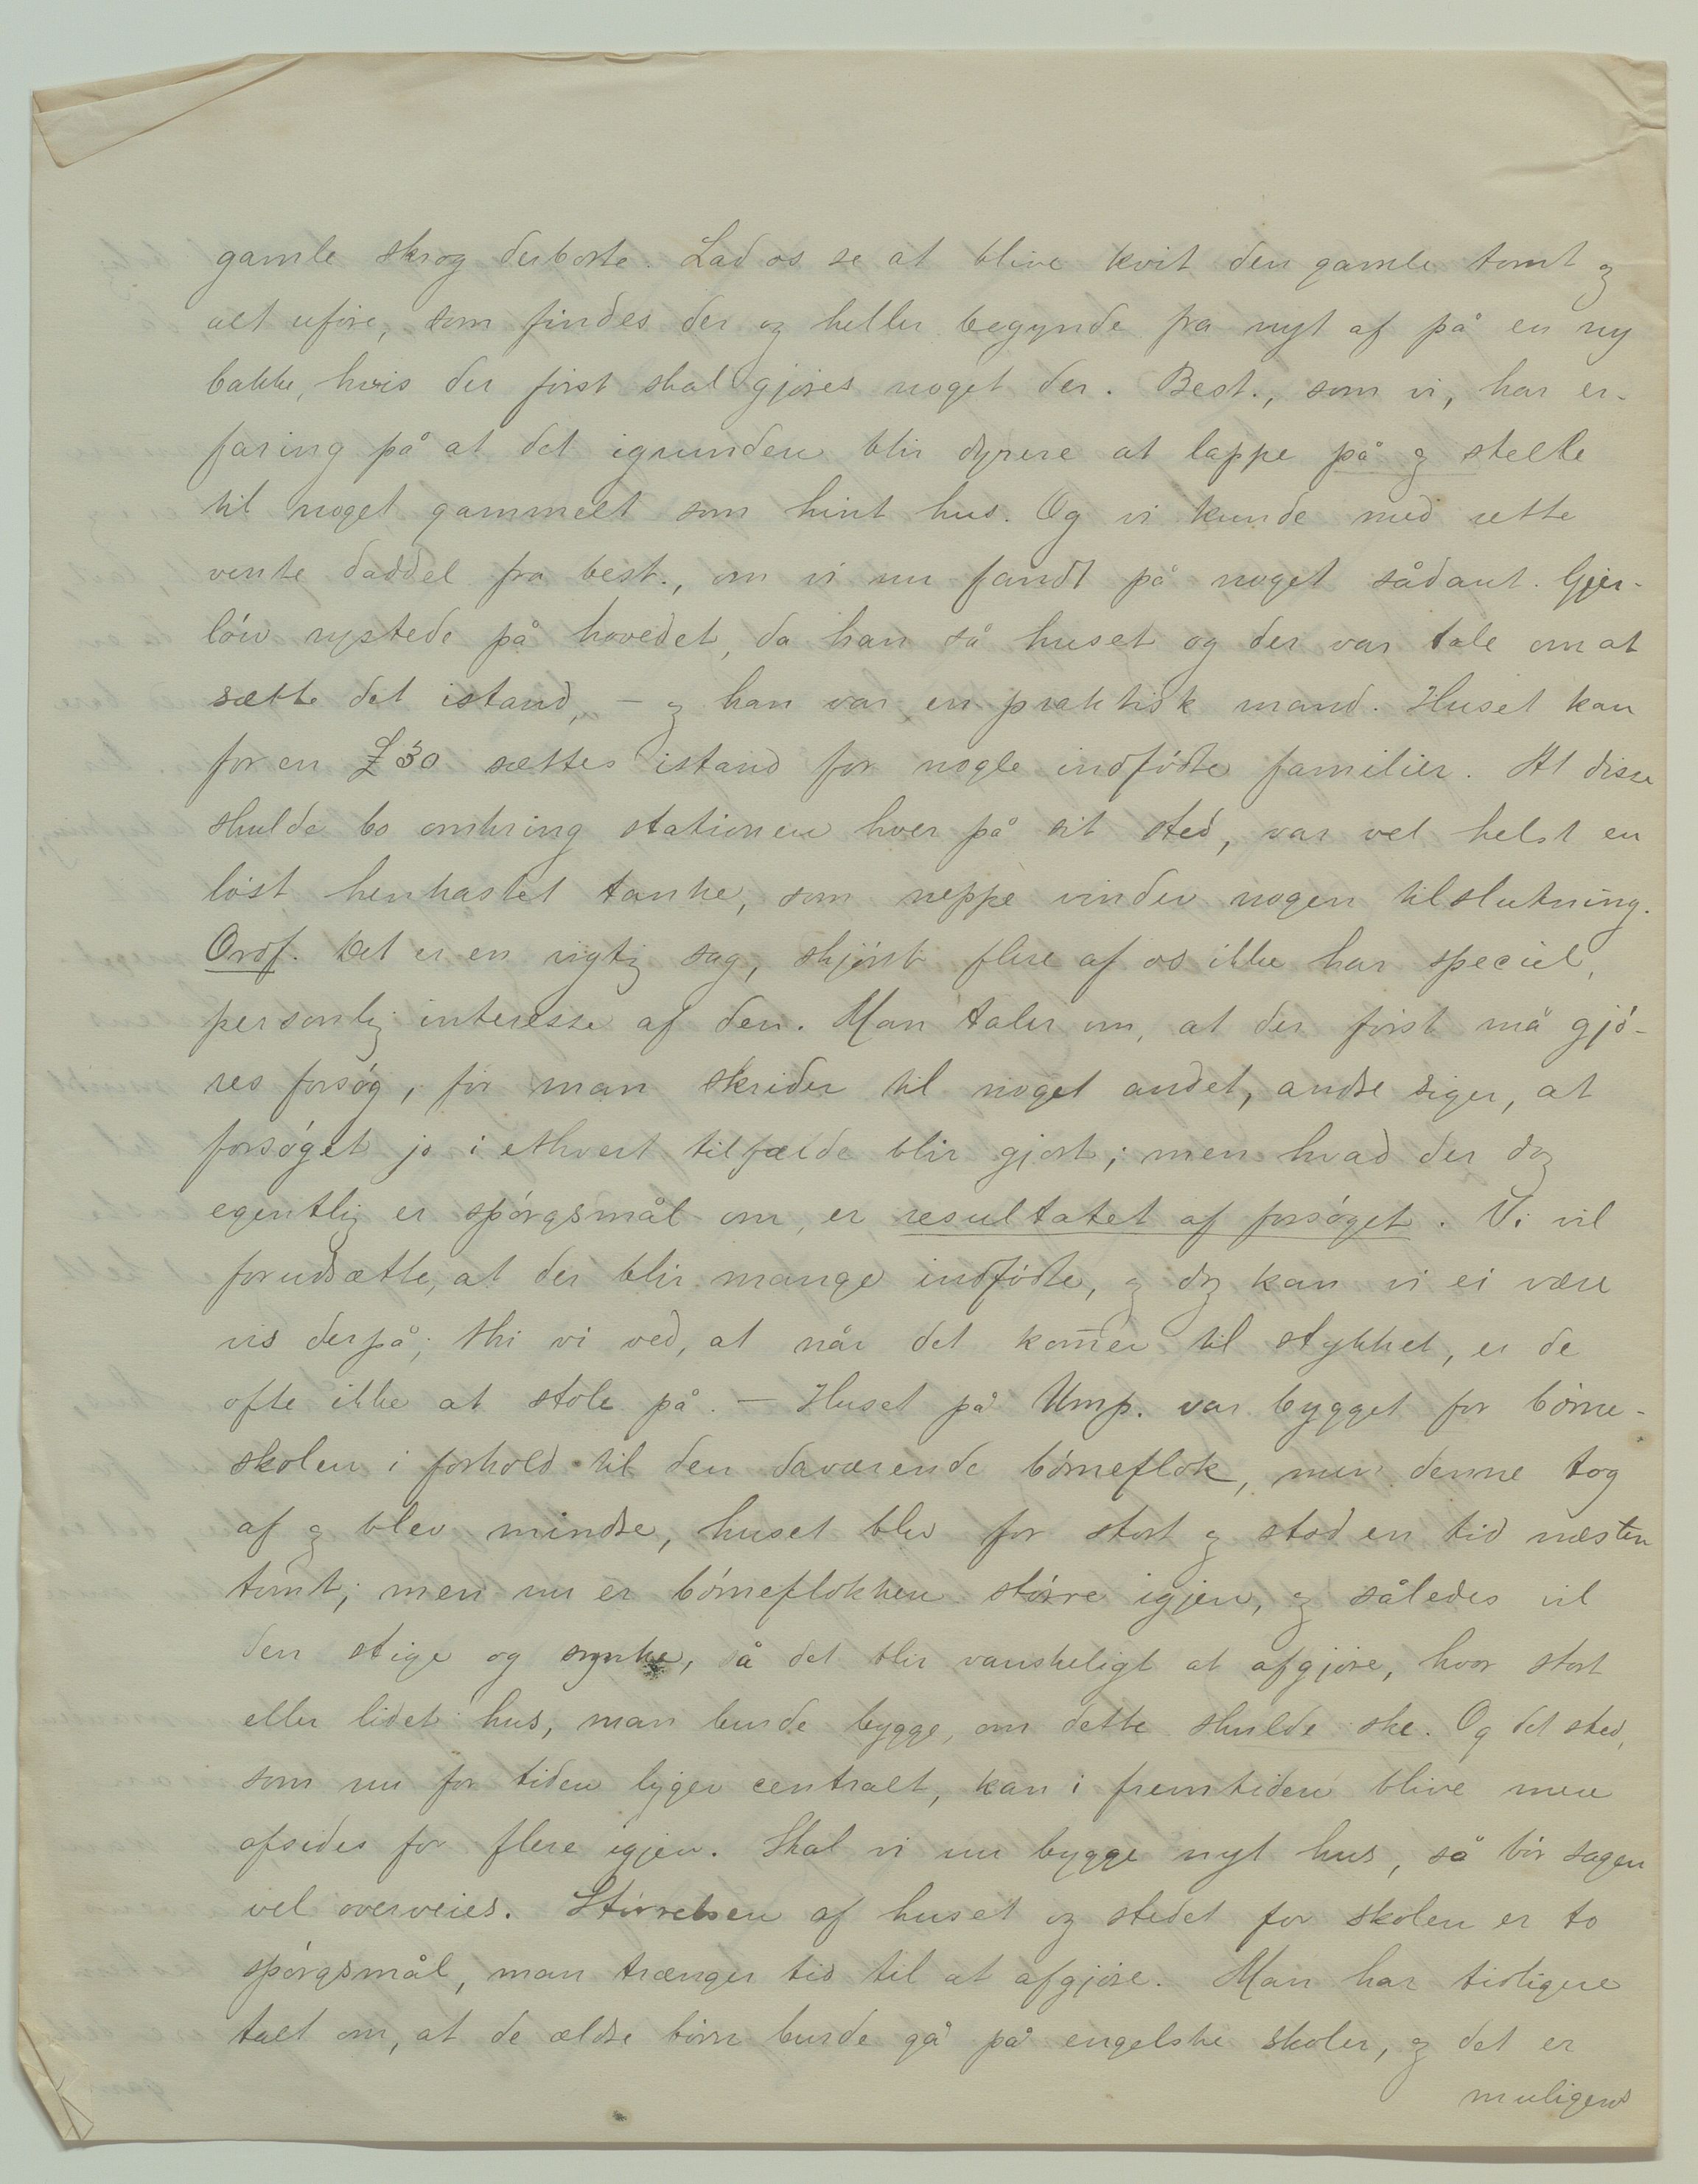 gamle skrog derborte. Lad os se at blive kvit den gamle tomt og
alt uføre, som findes der og heller begynde fra nyt af på en ny
bakke, hvis der først skal gjøres noget der. Best., som vi, har er-
faring på at det igrunden blir dyrere at lappe på og stelle
til noget gammelt som hint hus. Og vi kunde med rette
vente daddel fra best., om vi nu fandt på noget sådant. Gjer-
løw rystede på hovedet, da han så huset og der var tale om at
sætte det istand, – og han var en praktisk mand. Huset kan
for en £30 sættes istand for nogle indfødte familier. At disse
skulde bo omkring stationen hver på sit sted, var vel helst en
løst henkastet tanke, som neppe vinder nogen tilslutning.
Ordf. Det er en vigtig sag, skjønt flere af os ikke har speciel,
personlig interesse af den. Man taler om, at der først må gjø-
res forsøg, før man skrider til noget andet, andre siger, at
forsøget jo i ethvert tilfælde blir gjort; men hvad der dog
egentlig er spørgsmål om, er resultatet af forsøget. Vi vil
forudsætte, at der blir mange indfødte, og dog kan vi ei være
vis derpå; thi vi ved, at når det kom̄er til stykket, er de
ofte ikke at stole på. – Huset på Ump. var bygget for børne-
skolen i forhold til den daværende børneflok, men denne tog
af og blev mindre, huset blev for stort og stod en tid næsten
tomt; men nu er børneflokken større igjen, og således vil
den stige og synke, så det blir vanskeligt at afgjøre, hvor stort
eller lidet hus, man burde bygge, om dette skulde ske. Og det sted,
som nu for tiden ligger centralt, kan i fremtiden blive mere
afsides for flere igjen. Skal vi nu bygge nyt hus, så bør sagen
vel overveies. Størrelsen af huset og stedet for skolen er to
spørgsmål, man trænger tid til at afgjøre. Man har tidligere
talt om, at de ældre børn burde gå på engelske skoler, og det er
muligens